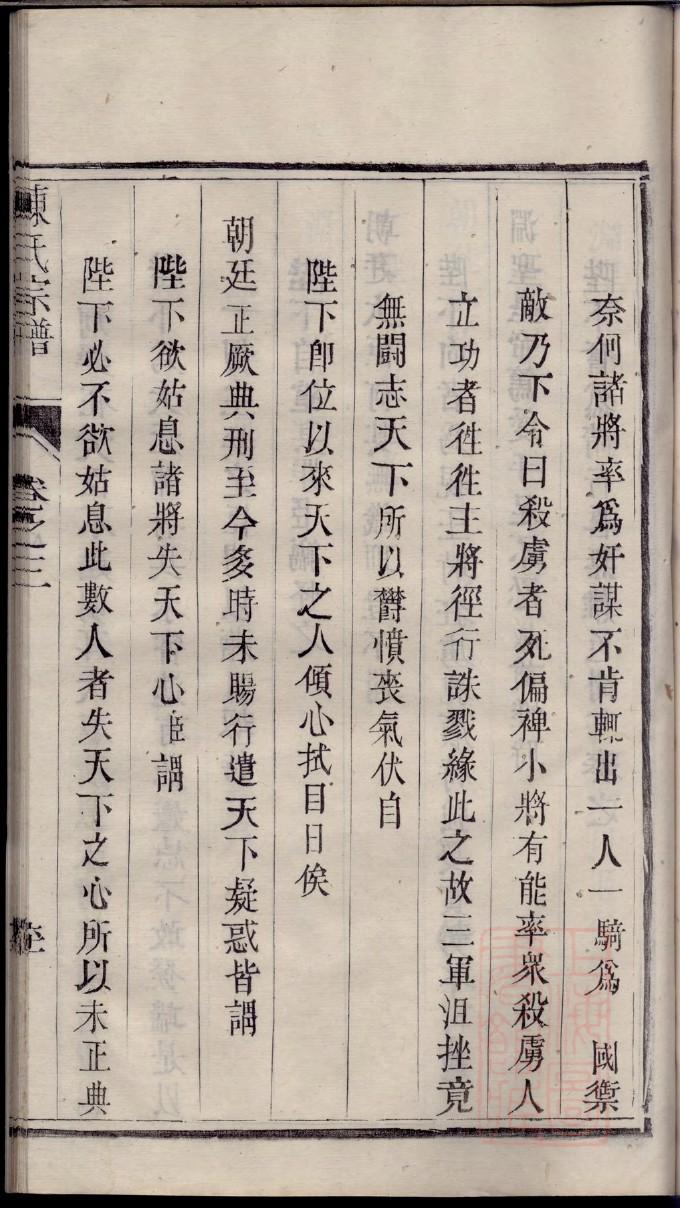 奈何諸將率爲奸謀不肯輒出一人一騎爲 國禦
敵乃下令曰殺虜者死偏裨小將有能率衆殺虜人
立功者徃徃主將徑行誅戮緣此之故三軍沮挫竟
無鬭志天下所以欝憤喪氣伏自
陛下卽位以來天下之人傾心拭目日俟
朝廷正厥典刑至今多時未賜行遣天下疑惑皆謂
陛下欲姑息諸將失天下心臣謂
陛下必不欲姑息此數人者失天下之心所以未正典
陳氏宗譜 卷之三